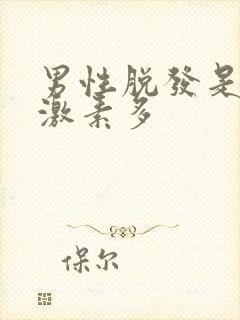 男性脱發是
激素多
保尔